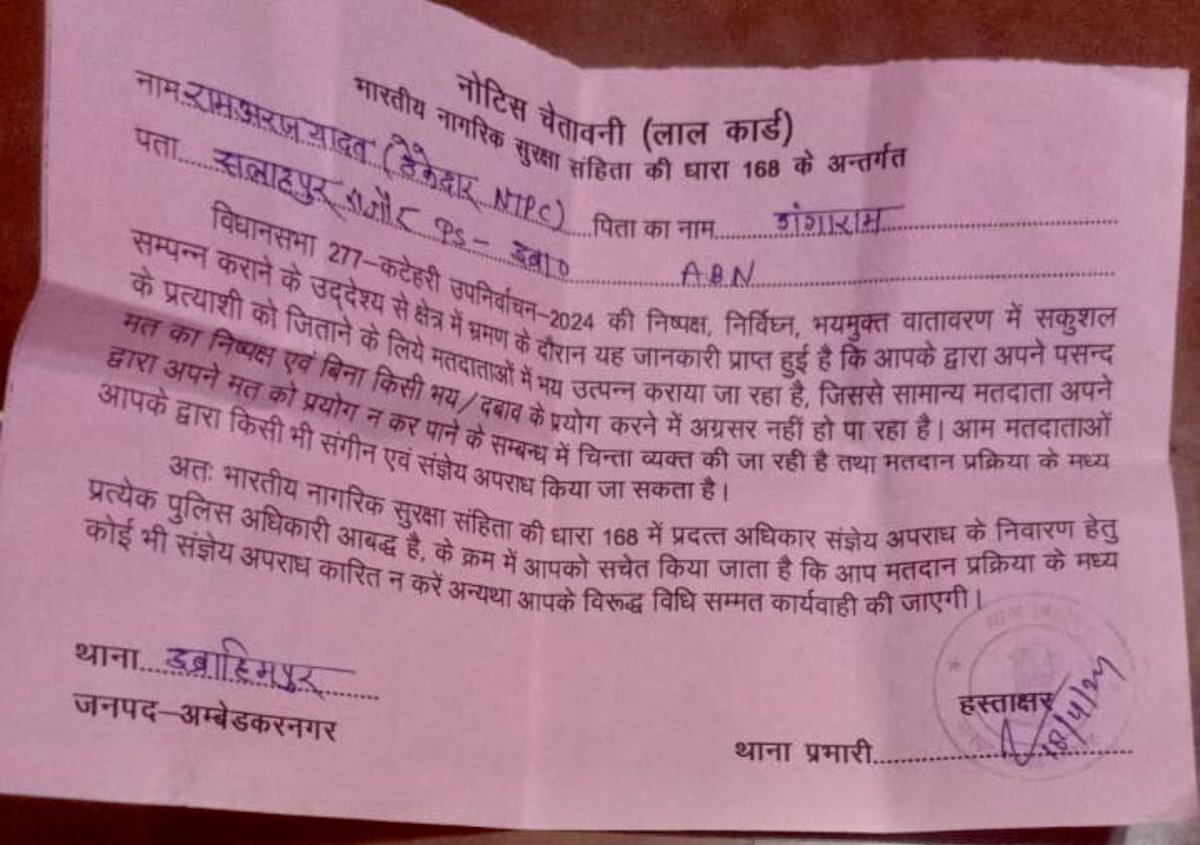 नोटिस चेतावनी (लाल कार्ड)
भारतीय नागरिक सुरक्षा संहिता की धारा 168 के अन्तर्गत
नाम रामअरज यादव (ठेकेदार NTPC) पिता का नाम गंगाराम
पता सलाहपुर रजौर PS- इब्रा0 ABN
विधानसभा 277–कटेहरी उपनिर्वाचन–2024 की निष्पक्ष, निर्विघ्न, भयमुक्त वातावरण में सकुशल
सम्पन्न कराने के उद्देश्य से क्षेत्र में भ्रमण के दौरान यह जानकारी प्राप्त हुई है कि आपके द्वारा अपने पसन्द
के प्रत्याशी को जिताने के लिये मतदाताओं में भय उत्पन्न कराया जा रहा है, जिससे सामान्य मतदाता अपने
मत का निष्पक्ष एवं बिना किसी भय/दबाव के प्रयोग करने में अग्रसर नहीं हो पा रहा है। आम मतदाताओं
द्वारा अपने मत को प्रयोग न कर पाने के सम्बन्ध में चिन्ता व्यक्त की जा रही है तथा मतदान प्रक्रिया के मध्य
आपके द्वारा किसी भी संगीन एवं संज्ञेय अपराध किया जा सकता है।
अतः भारतीय नागरिक सुरक्षा संहिता की धारा 168 में प्रदत्त अधिकार संज्ञेय अपराध के निवारण हेतु
प्रत्येक पुलिस अधिकारी आबद्ध है, के क्रम में आपको सचेत किया जाता है कि आप मतदान प्रक्रिया के मध्य
कोई भी संज्ञेय अपराध कारित न करें अन्यथा आपके विरूद्ध विधि सम्मत कार्यवाही की जाएगी।
थाना इब्राहिमपुर
जनपद–अम्बेडकरनगर
हस्ताक्षर
थाना प्रभारी